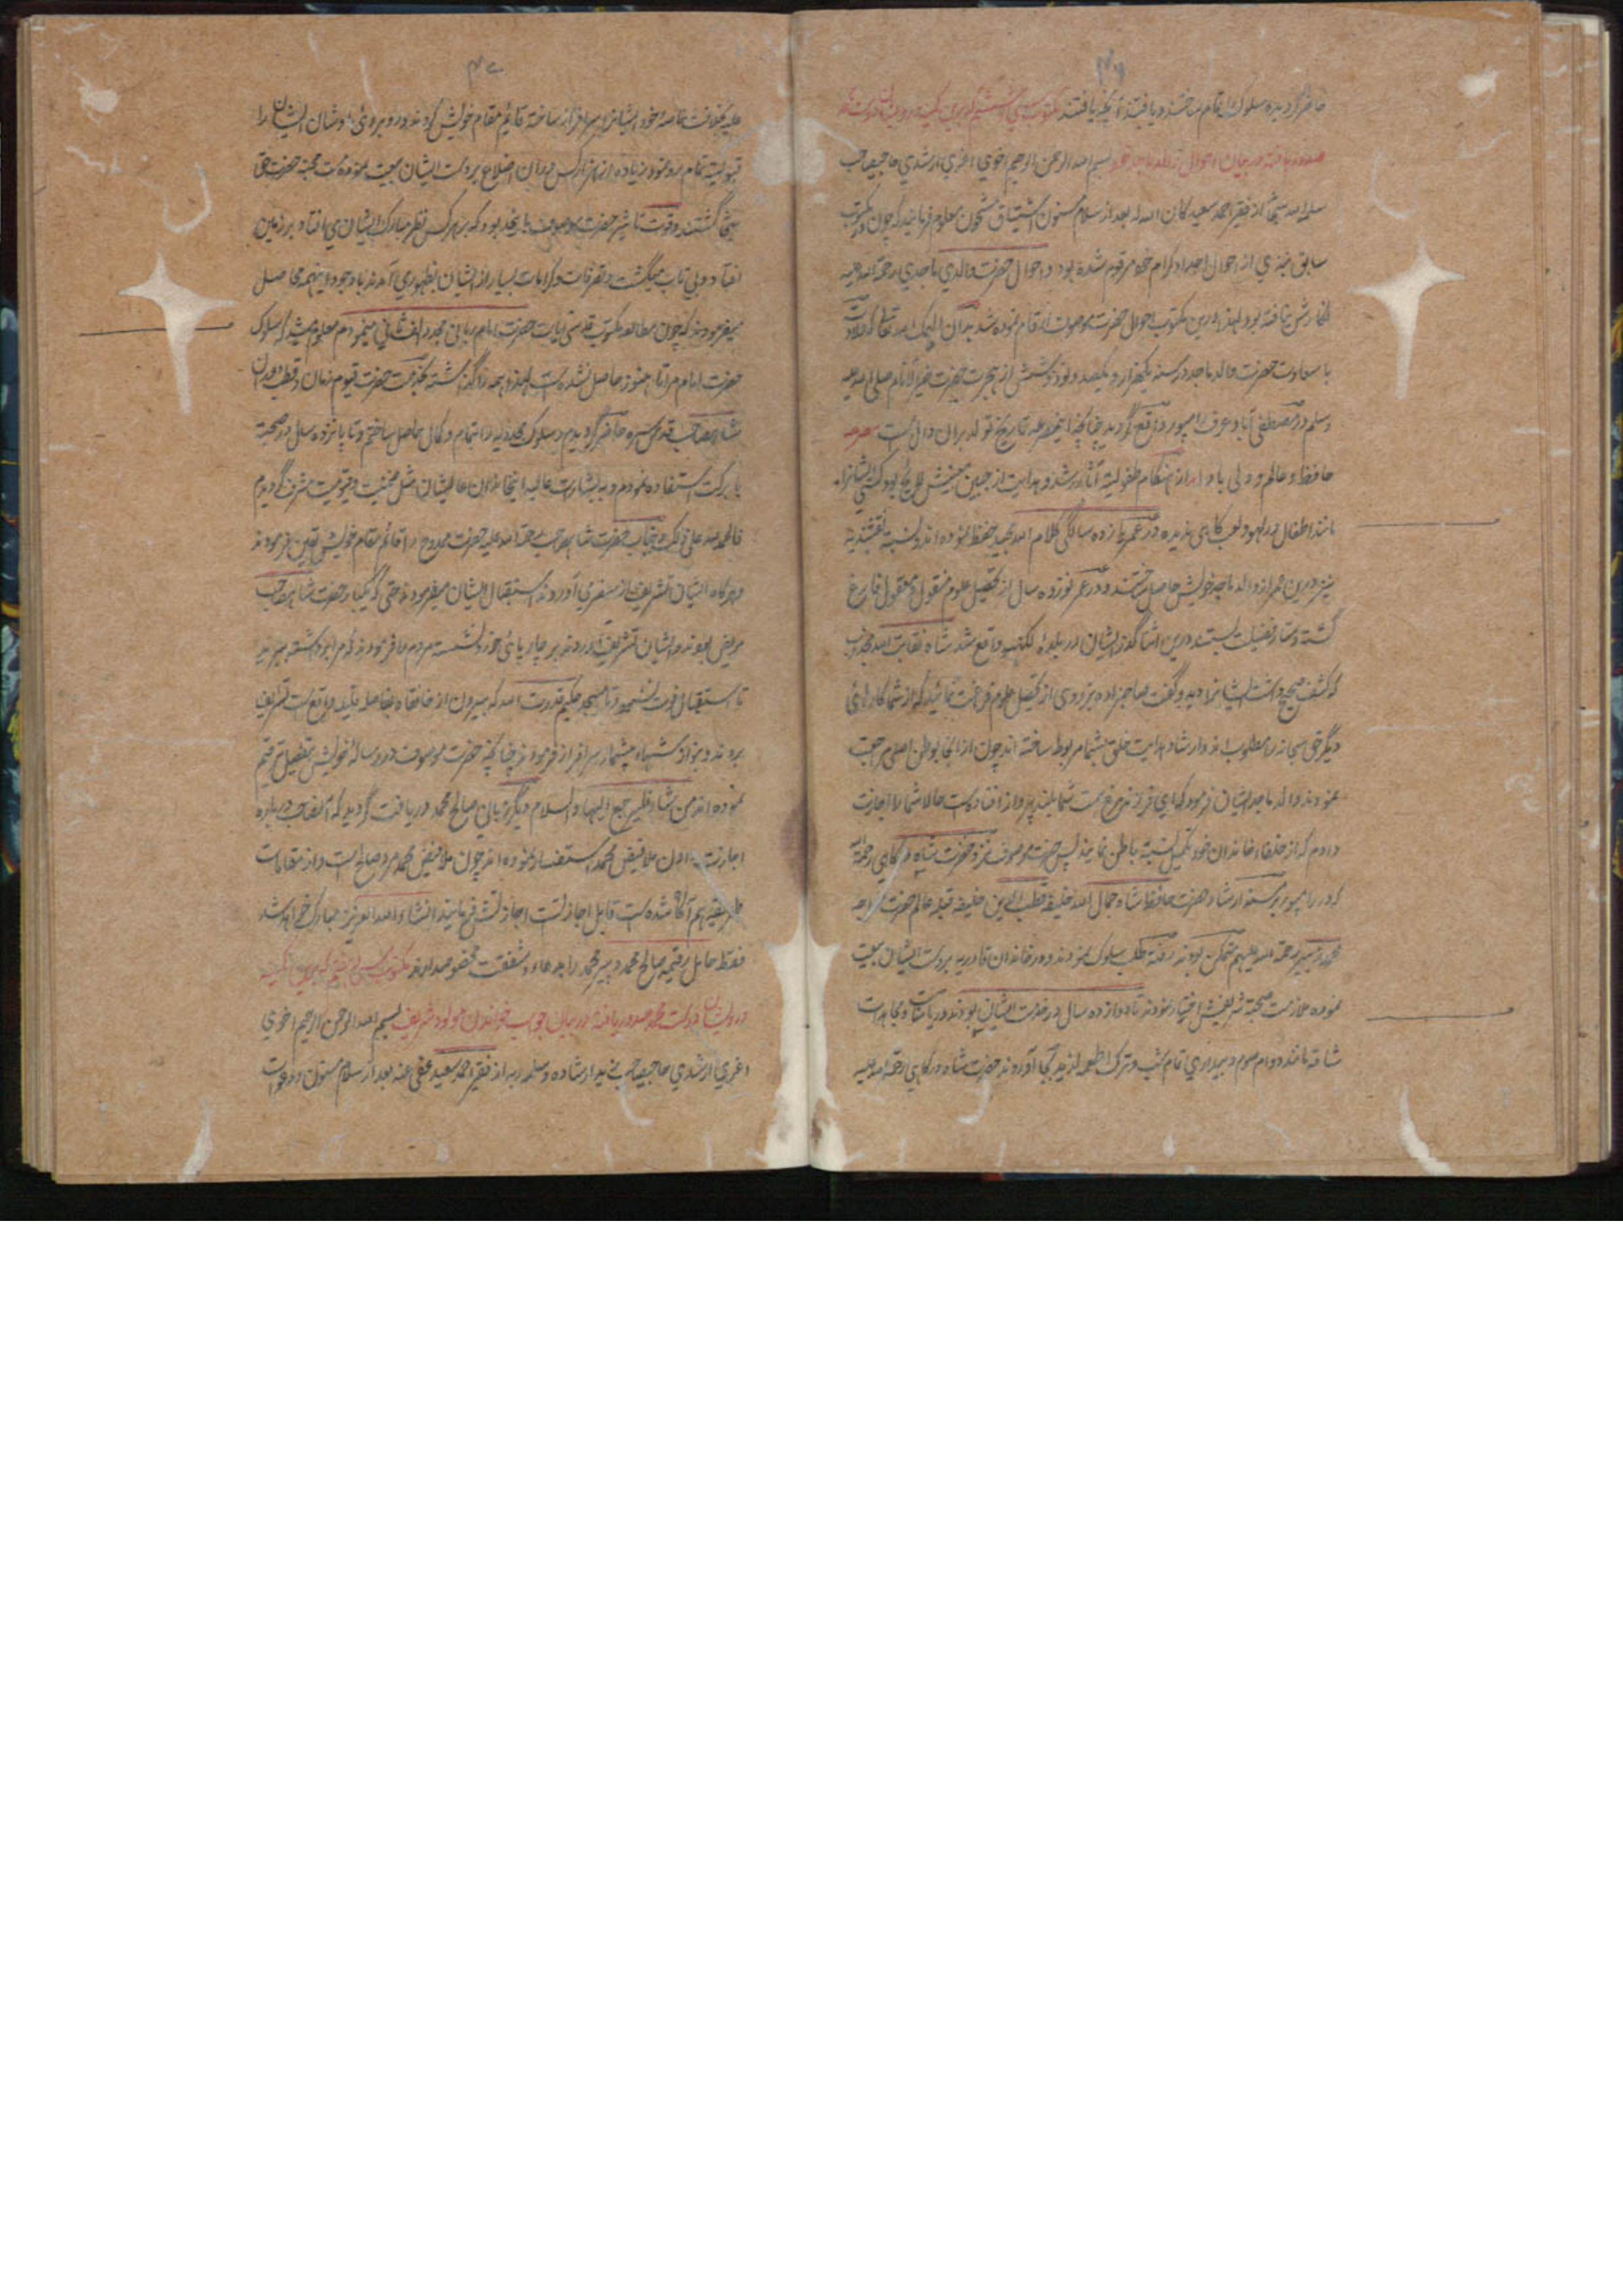 ۴۶
حاضر گردیده سلوک را تمام ساختند و یافتند آنچه یافتند مکتوب سی و ششم که برین کمینه درویشان دوست محمد
صدور یافته در بیان احوال والد ماجد خود بسم الله الرحمن الرحیم اخوی اعزی ارشدی حاجی صاحب
سلمه الله سبحانه از فقیر احمد سعید کان الله له بعد از سلام مسنون اشتیاق مشحون معلوم فرمایند که چون در مکتوب
سابق چیزی از احوال اجداد کرام خود مرقوم شده بود و احوال حضرت والدی ماجدی رحمة الله علیه
نگارش نیافته بود لهذا درین مکتوب احوال حضرت موصوف ارقام نموده شد بدان الیک الله تعالی که ولادت
با سعادت حضرت والد ماجد در سنه یکهزار و یکصد و نود و شش از هجرت حضرت خیر الانام صلی الله علیه
وسلم در مصطفی آباد عرف رامپور واقع گردید چنانچه این مصرعه تاریخ تولد بران دال است مصرعه
حافظ و عالم و ولی بادا از هنگام طفولیت آثار رشد و هدایت از جبین مبینش لایح بود کسی ایشانرا
مانند اطفال در لهو و لعب گاهی ندیده در عمر یازده سالگی کلام الله مجید حفظ نموده اند و نسبة نقشبندیه
نیز درین عمر از والد ماجد خویش حاصل ساختند و در عمر نوزده سال از تحصیل علوم منقول و معقول فارغ
گشته دستار فضیلت بستند درین اثنا گذر ایشان در بلده لکهنو واقع شد شاه نقابت الله مجذوب
که کشف صحیح داشت ایشانرا دید و گفت صاحبزاده بزودی از تحصیل علوم فراغت نمائید که از شما کارهائی
دیگر حق سبحانه را مطلوب اند و ارشاد و هدایت خلق بشما مربوط ساخته اند چون از انجا بوطن اصلی مراجعت
نمودند والد ماجد ایشان فرمود که ای فرزند مرغ همت شما بلند پرواز افتاده است حالا شما را اجازت
دادم که از خلفاء خاندان خود تکمیل نسبة باطن نمایند پس حضرت موصوف نزد حضرت شاه درگاهی رحمة الله
که در رامپور بر مسند ارشاد حضرت حافظ شاه جمال الله خلیفه قطب الدین خلیفه قبله عالم حضرت خواجه
محمد زبیر رحمة الله علیهم متمکن بودند رفته طلب سلوک نمودند و در خاندان قادریه بر دست ایشان بیعت
نموده ملازمت صحبة شریفش اختیار نمودند تا دوازده سال در خدمت ایشان بودند و ریاضات و مجاهدات
شاقه مانند دوام صوم و بیداری تمام شب و ترک اطعمه لذیذ بجا آوردند حضرت شاه درگاهی رحمة الله علیه
۴۷
علیه بخلافت خاصه خود ایشانرا سرافراز ساخته قایم مقام خویش کردند و روبروی اوشان ایشان را
قبولیة تمام رو نمود زیاده از هزار کس دران اضلاع بر دست ایشان بیعت نموده مست محبة حضرت حق
سبحانه گشتند و قوت تاثیر حضرت موصوف باینحد بود که بر هر کس نظر مبارک ایشان می افتاد بر زمین
افتاده بی تاب میگشت و تصرفات و کرامات بسیار از ایشان بظهور می آمدند با وجود اینهمه حاصل
میفرمودند که چون مطالعه مکتوب قدسی آیات حضرت امام ربانی مجدد الف ثانی مینمودم معلوم میشد که سلوک
حضرت امام مرا تا هنوز حاصل نشده است لهذا همه را گذاشته بخدمت حضرت قیوم زمان و قطب دوران
شاه صاحب قدس سره حاضر گردیدم و سلوک مجددیه را بتمام و کمال حاصل ساختم و تا پانزده سال در صحبة
با برکت استفاده نمودم و به بشارت عالیه این خاندان عالیشان مثل ضمنیت و قیومیت مشرف گردیدم
فالحمد لله علی ذلک و جناب حضرت شاه صاحب رحمة الله علیه حضرت ممدوح را قائم مقام خویش تعین فرمودند
و هرگاه ایشان تشریف از سفری آوردند استقبال ایشان میفرمودند حتی که یکبار حضرت شاه صاحب
مریض بودند و ایشان تشریف آوردند بر چارپائی خود نشسته مردم را فرمودند که مرا برداشته ببرند
تا استقبال فوت نشود و تا مسجد حکیم قدرت الله که بیرون از خانقاه بفاصله قلیل واقع است تشریف
بردند و بنوازشهای بیشمار سرافراز فرمودند چنانچه حضرت موصوف در رساله خویش بتفصیل ترقیم
نموده اند من شاء فلیرجع الیها والسلام دیگر زبانی صالح محمد دریافت گردید که آنصاحب درباره
اجازت دادن ملا فیض محمد استفسار نموده اند چون ملا فیض محمد مرد صالح است و از مقامات
طریقه هم آگاه شده است قابل اجازتست اجازتش فرمایند انشاء الله العزیز مبارک خواهد شد
فقط حامل رقیمه صالح محمد و پیر محمد را بدعاء و شفقت مخصوص دارند مکتوب سی و هفتم که برین کمینه
درویشان دوست محمد صدور یافته در بیان جواب خواندن مولود شریف بسم الله الرحمن الرحیم اخوی
اعزی ارشدی حاجی صاحب بر مسند ارشاد و سلمه ربه از فقیر احمد سعید عفی عنه بعد از سلام مسنون و دعوات